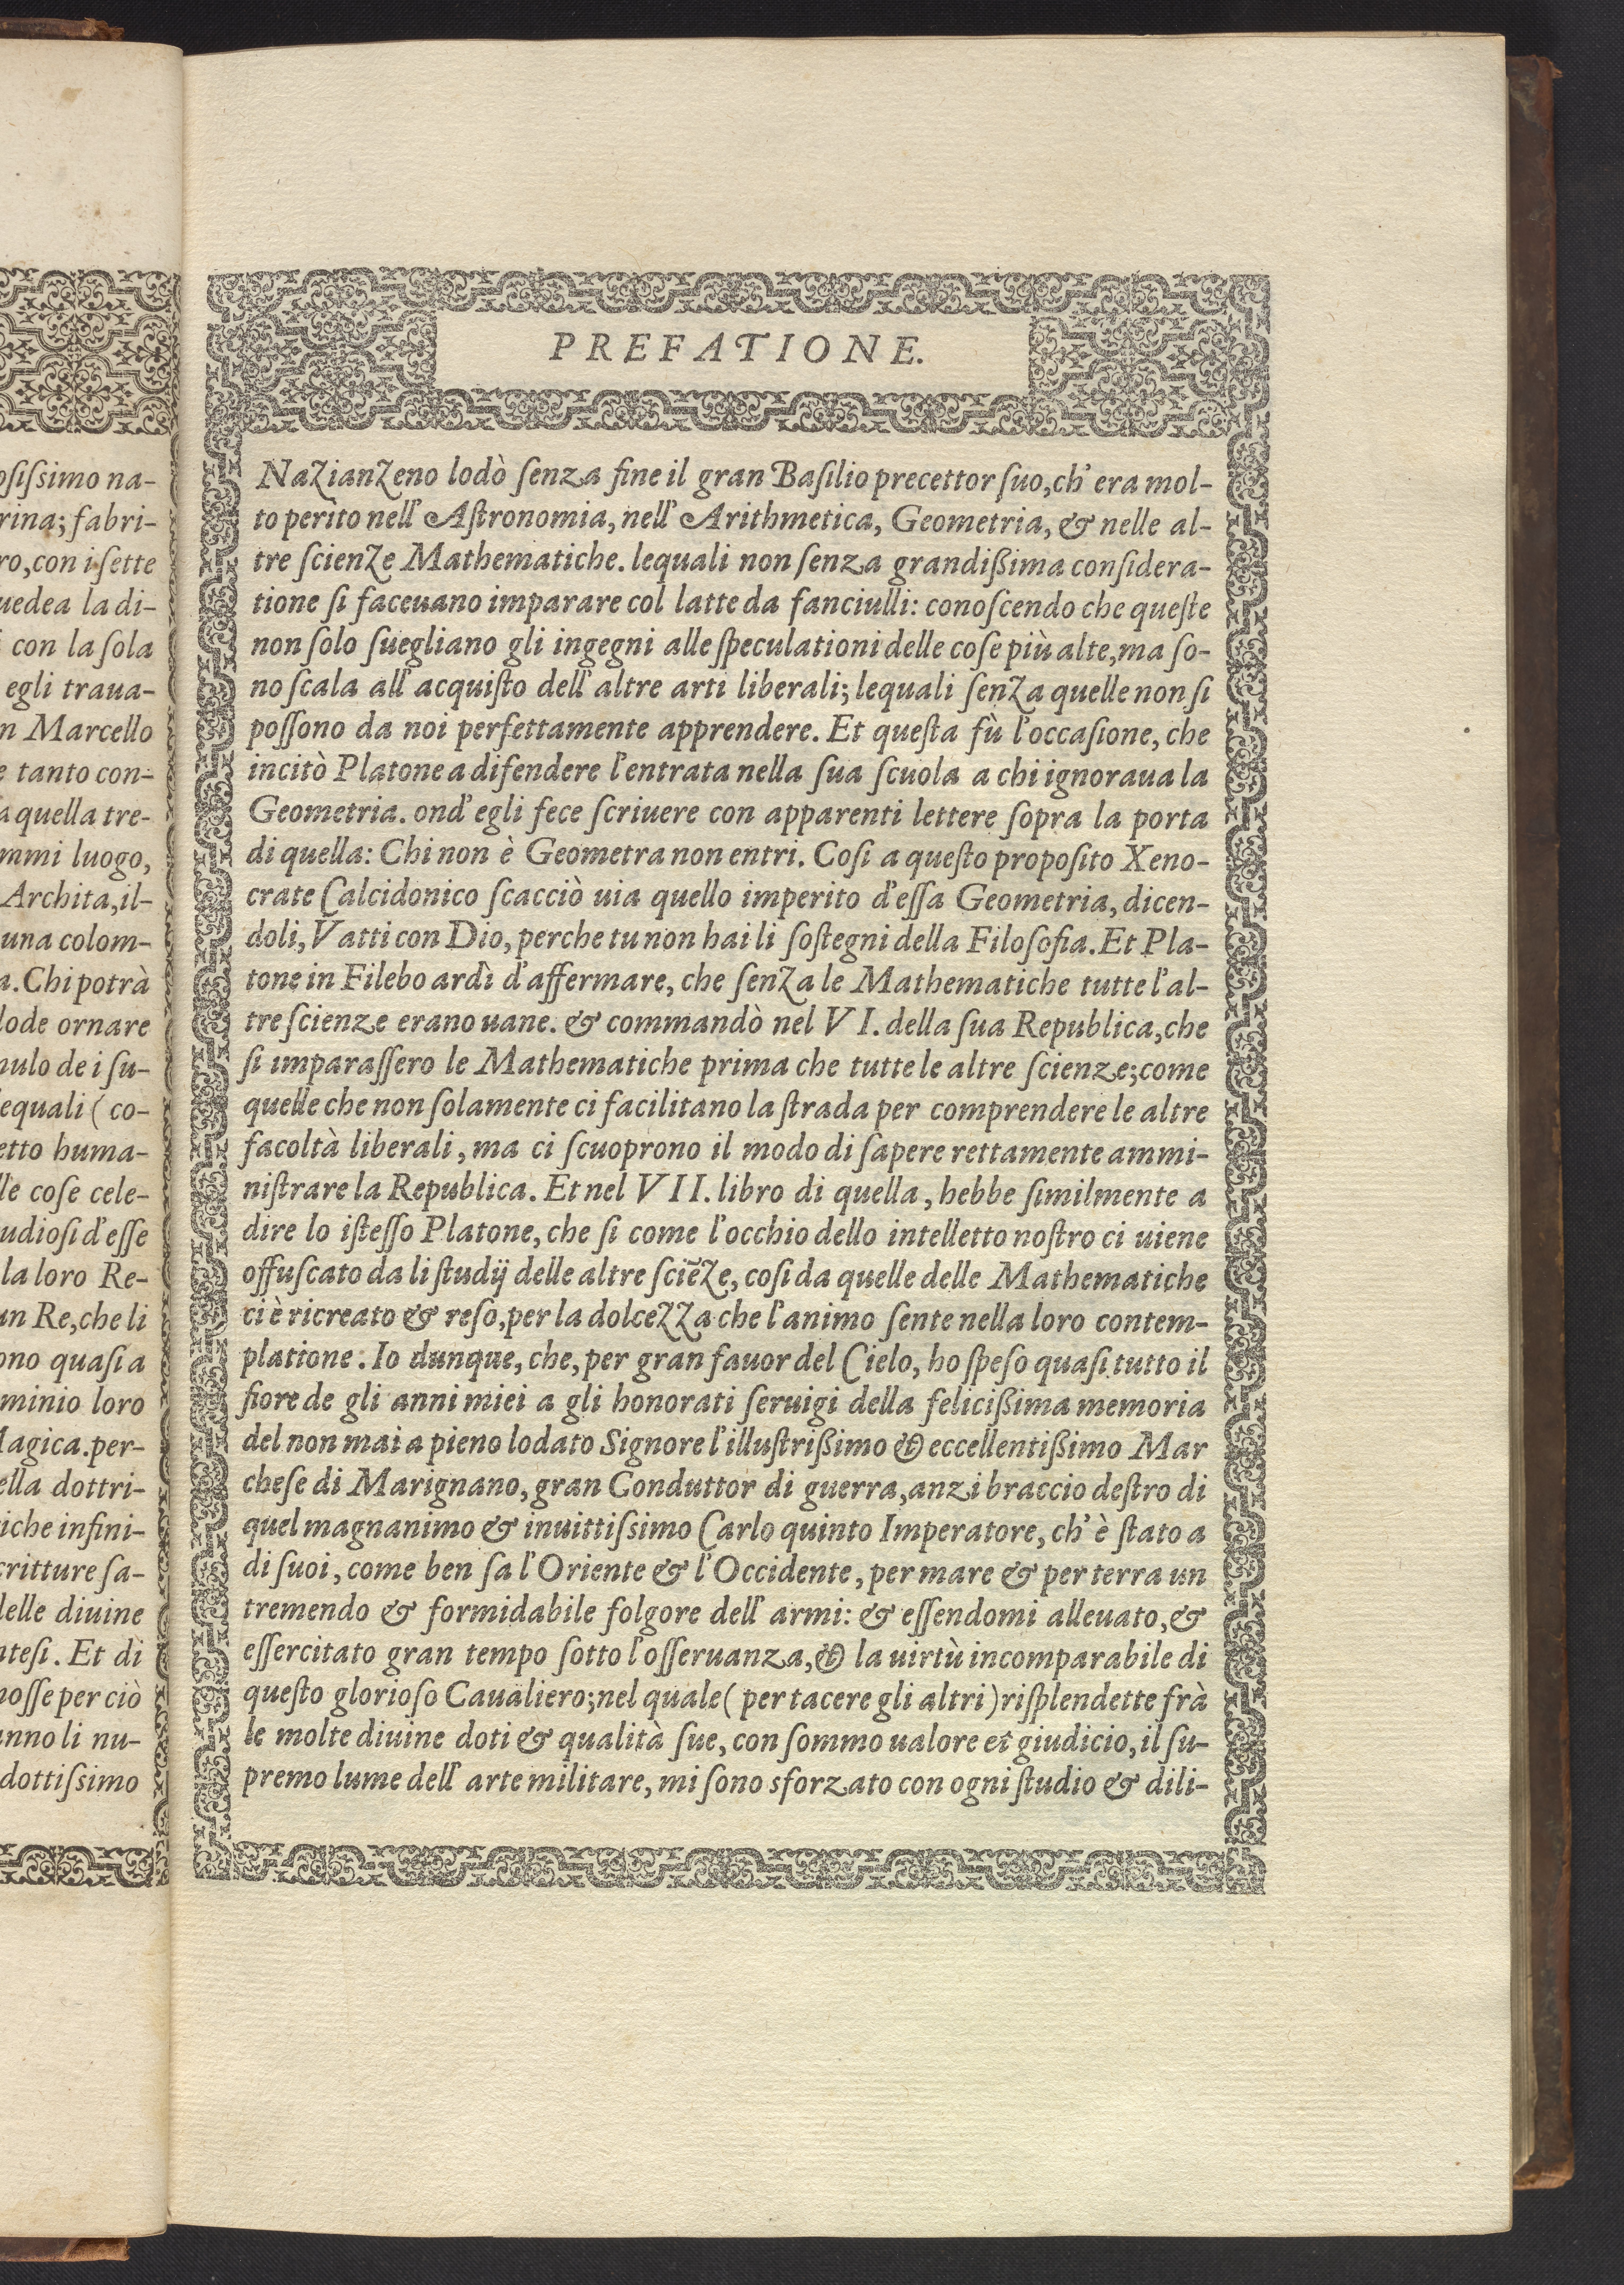 osissimo na-
rina; fabri-
ro, con i sette
uedea la di-
con la sola
egli traua-
n Marcello
e tanto con-
a quella tre-
mmi luogo,
Archita, il-
una colom-
a. Chi potrà
lode ornare
nulo de i su-
lequali (co-
etto huma-
lle cose cele-
udiosi d'esse
la loro Re-
un Re, che li
ono quasi a
minio loro
Magica. per-
ella dottri-
iche infini-
critture sa-
delle diuine
ntesi. Et di
mosse per ciò
anno li nu-
dottissimo
PREFATIONE.
Nazianzeno lodò senza fine il gran Basilio precettor suo, ch' era mol-
to perito nell' Astronomia, nell' Arithmetica, Geometria, & nelle al-
tre scienze Mathematiche. lequali non senza grandißima considera-
tione si faceuano imparare col latte da fanciulli: conoscendo che queste
non solo suegliano gli ingegni alle speculationi delle cose più alte, ma so-
no scala all' acquisto dell' altre arti liberali; lequali senza quelle non si
possono da noi perfettamente apprendere. Et questa fù l'occasione, che
incitò Platone a difendere l'entrata nella sua scuola a chi ignoraua la
Geometria. ond' egli fece scriuere con apparenti lettere sopra la porta
di quella: Chi non è Geometra non entri. Cosi a questo proposito Xeno-
crate Calcidonico scacciò uia quello imperito d'essa Geometria, dicen-
doli, Vatti con Dio, perche tu non hai li sostegni della Filosofia. Et Pla-
tone in Filebo ardì d'affermare, che senza le Mathematiche tutte l'al-
tre scienze erano uane. & commandò nel VI. della sua Republica, che
si imparassero le Mathematiche prima che tutte le altre scienze; come
quelle che non solamente ci facilitano la strada per comprendere le altre
facoltà liberali, ma ci scuoprono il modo di sapere rettamente ammi-
nistrare la Republica. Et nel VII. libro di quella, hebbe similmente a
dire lo istesso Platone, che si come l'occhio dello intelletto nostro ci uiene
offuscato da li studij delle altre sciẽze, cosi da quelle delle Mathematiche
ci è ricreato & reso, per la dolcezza che l'animo sente nella loro contem-
platione. Io dunque, che, per gran fauor del Cielo, ho speso quasi tutto il
fiore de gli anni miei a gli honorati seruigi della felicißima memoria
del non mai a pieno lodato Signore l'illustrißimo & eccellentißimo Mar
chese di Marignano, gran Conduttor di guerra, anzi braccio destro di
quel magnanimo & inuittissimo Carlo quinto Imperatore, ch' è stato a
di suoi, come ben sa l'Oriente & l'Occidente, per mare & per terra un
tremendo & formidabile folgore dell' armi: & essendomi alleuato, &
essercitato gran tempo sotto l'osseruanza, & la uirtù incomparabile di
questo glorioso Caualiero; nel quale (per tacere gli altri) risplendette frà
le molte diuine doti & qualità sue, con sommo ualore et giudicio, il su-
premo lume dell' arte militare, mi sono sforzato con ogni studio & dili-